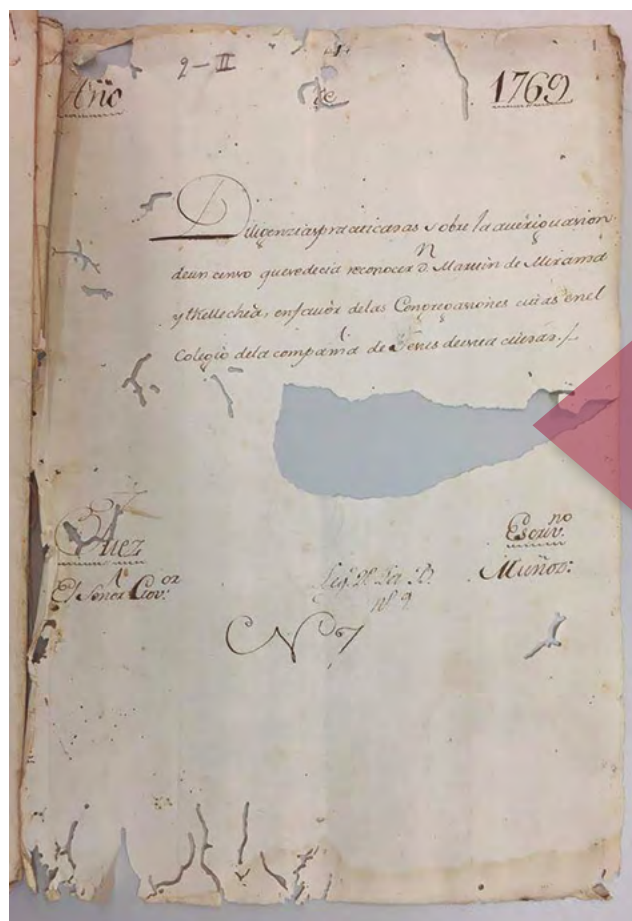 9-II
Año de 1769
Diligenzias practicadas sobre la averiguasion
de un censo que se decia reconocer Dn. Martin de Mirama
y thellechea, en favor de las Congregasiones citas en el
Colegio de la compañia de Jesus de esta ciudad./
Juez
El Señor Govor.
Escrivno.
Muñoz:
Leg.
nº 9
N 7